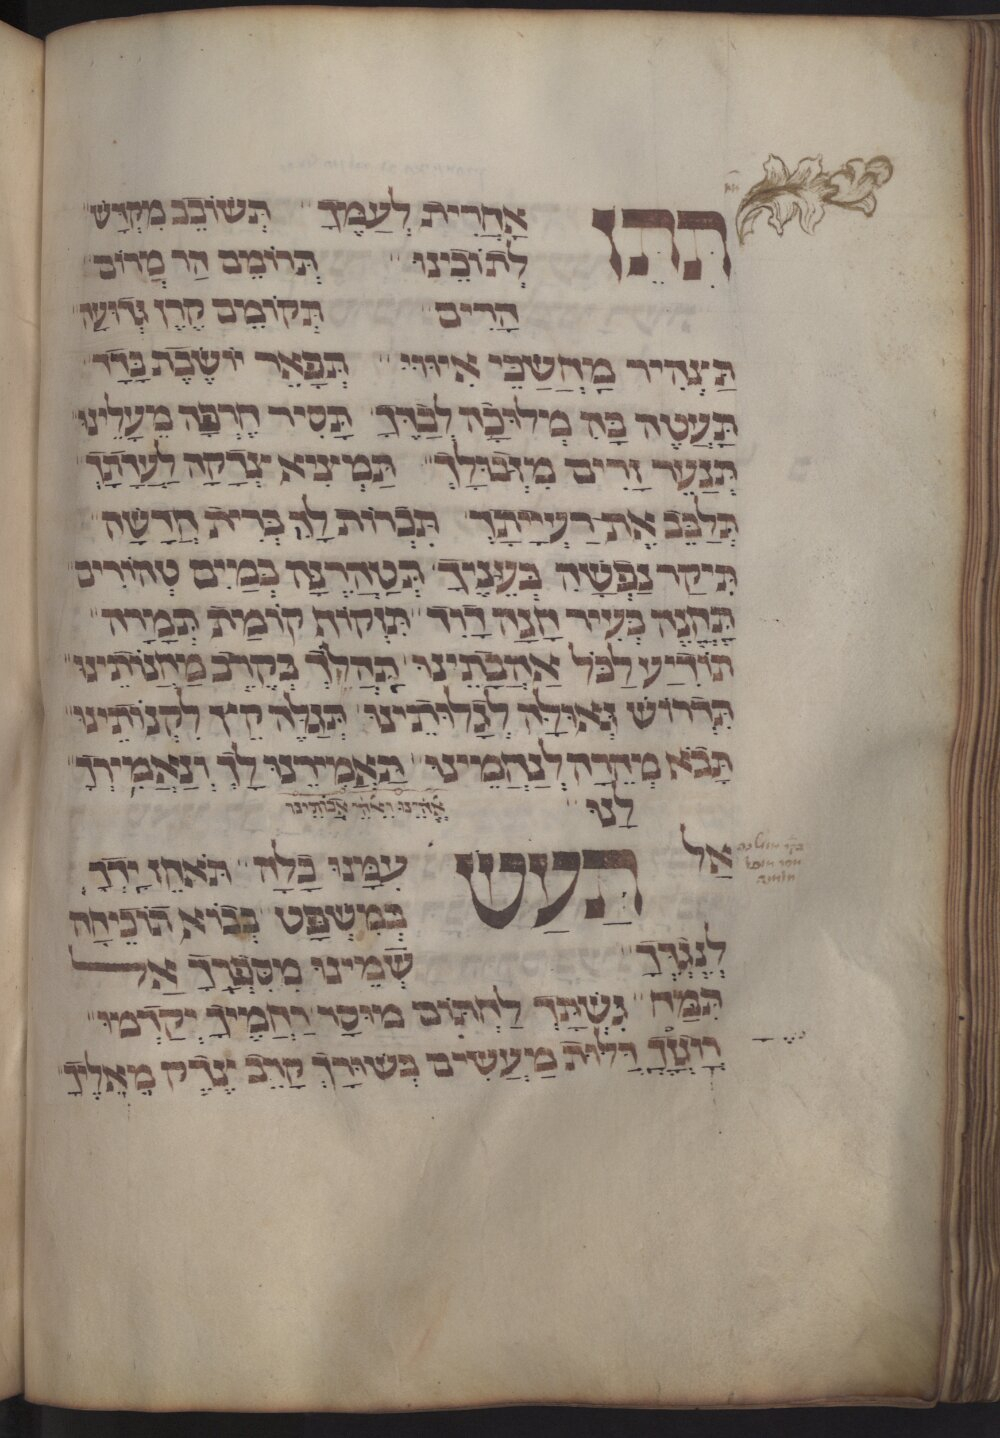 תִתֵן אַחֲרִית לְעַמֶךָ תְּשׁוֹבֵב מִקְדָּשׁ
לְתוֹכֵינוּ תְּרוֹמֵם הַר מְרוֹם
הָרִים תְּקוֹמֵם קֶרֶן גְּדוּעָה
תַּצְהִיר מַחֲשַׁכֵּי אִיוּוּי תְּפָאֵר יוֹשֶׁבֶת בָּדָד
תַּעֲטֶה בָּהּ מְלוּכָה לְבַדֶּךָ תָּסִיר חֶרְפָּה מֵעָלֵינוּ
תְּנַעֵר זָרִים מִזְּבוּלָךְ תַּמְצִיא צְדָקָה לַעֲדָתָךְ
תְּלַבֵּב אֶת רַעְיָתָךְ תִּכְרוֹת לָהּ בְּרִית חֲדָשָׁה
תִּיקַר נַפְשָׁהּ בְּעֵינֶיךָ תְּטַהֲרֶנָּה בְּמַיִם טְהוֹרִים
תַּחֲנֶה בְּעִיר חָנָה דָוִד תִּזְקוֹף קוֹמַת תְּמָרָה
תוֹדִיעַ לַכֹּל אַהֲבָתֵינוּ תְּהַלֵּךְ בְּקֶרֶב מַחֲנוֹתֵינוּ
תִּדְרוֹשׁ גְּאוּלָה לְגָלוּתֵינוּ תְּגַלֶּה קֵץ לִקְנוֹתֵינוּ
תָּבֹא מְהֵרָה לְנַחֲמֵינוּ תַּאֲמִירֵנוּ לָךְ וְנַאֲמִירָךְ
לָנוּ אֱהֵינוּ וֵאהֵי אֲבוֹתֵינוּ
אַל תַּעַשׂ עִמָּנוּ כָלָה תֹּאחֵז יָדֶךָ
בְּמִשְׁפָּט בְּבוֹא תוֹכֵיחָה
לְנֶגְדֶּךָ שְׁמֵינוּ מִסִּפְרָךְ אַל
תִּמַח גִּשְׁתָּךְ לַחְתּוֹם מוּסָר רַחֲמֶיךָ יְקַדְּמוּ
רָוגְזֶךָ דַּלוּת מַעֲשִׂים בְּשׁוּרָךְ קָרֵב צֶדֶק מֵאֵלֶיךָ